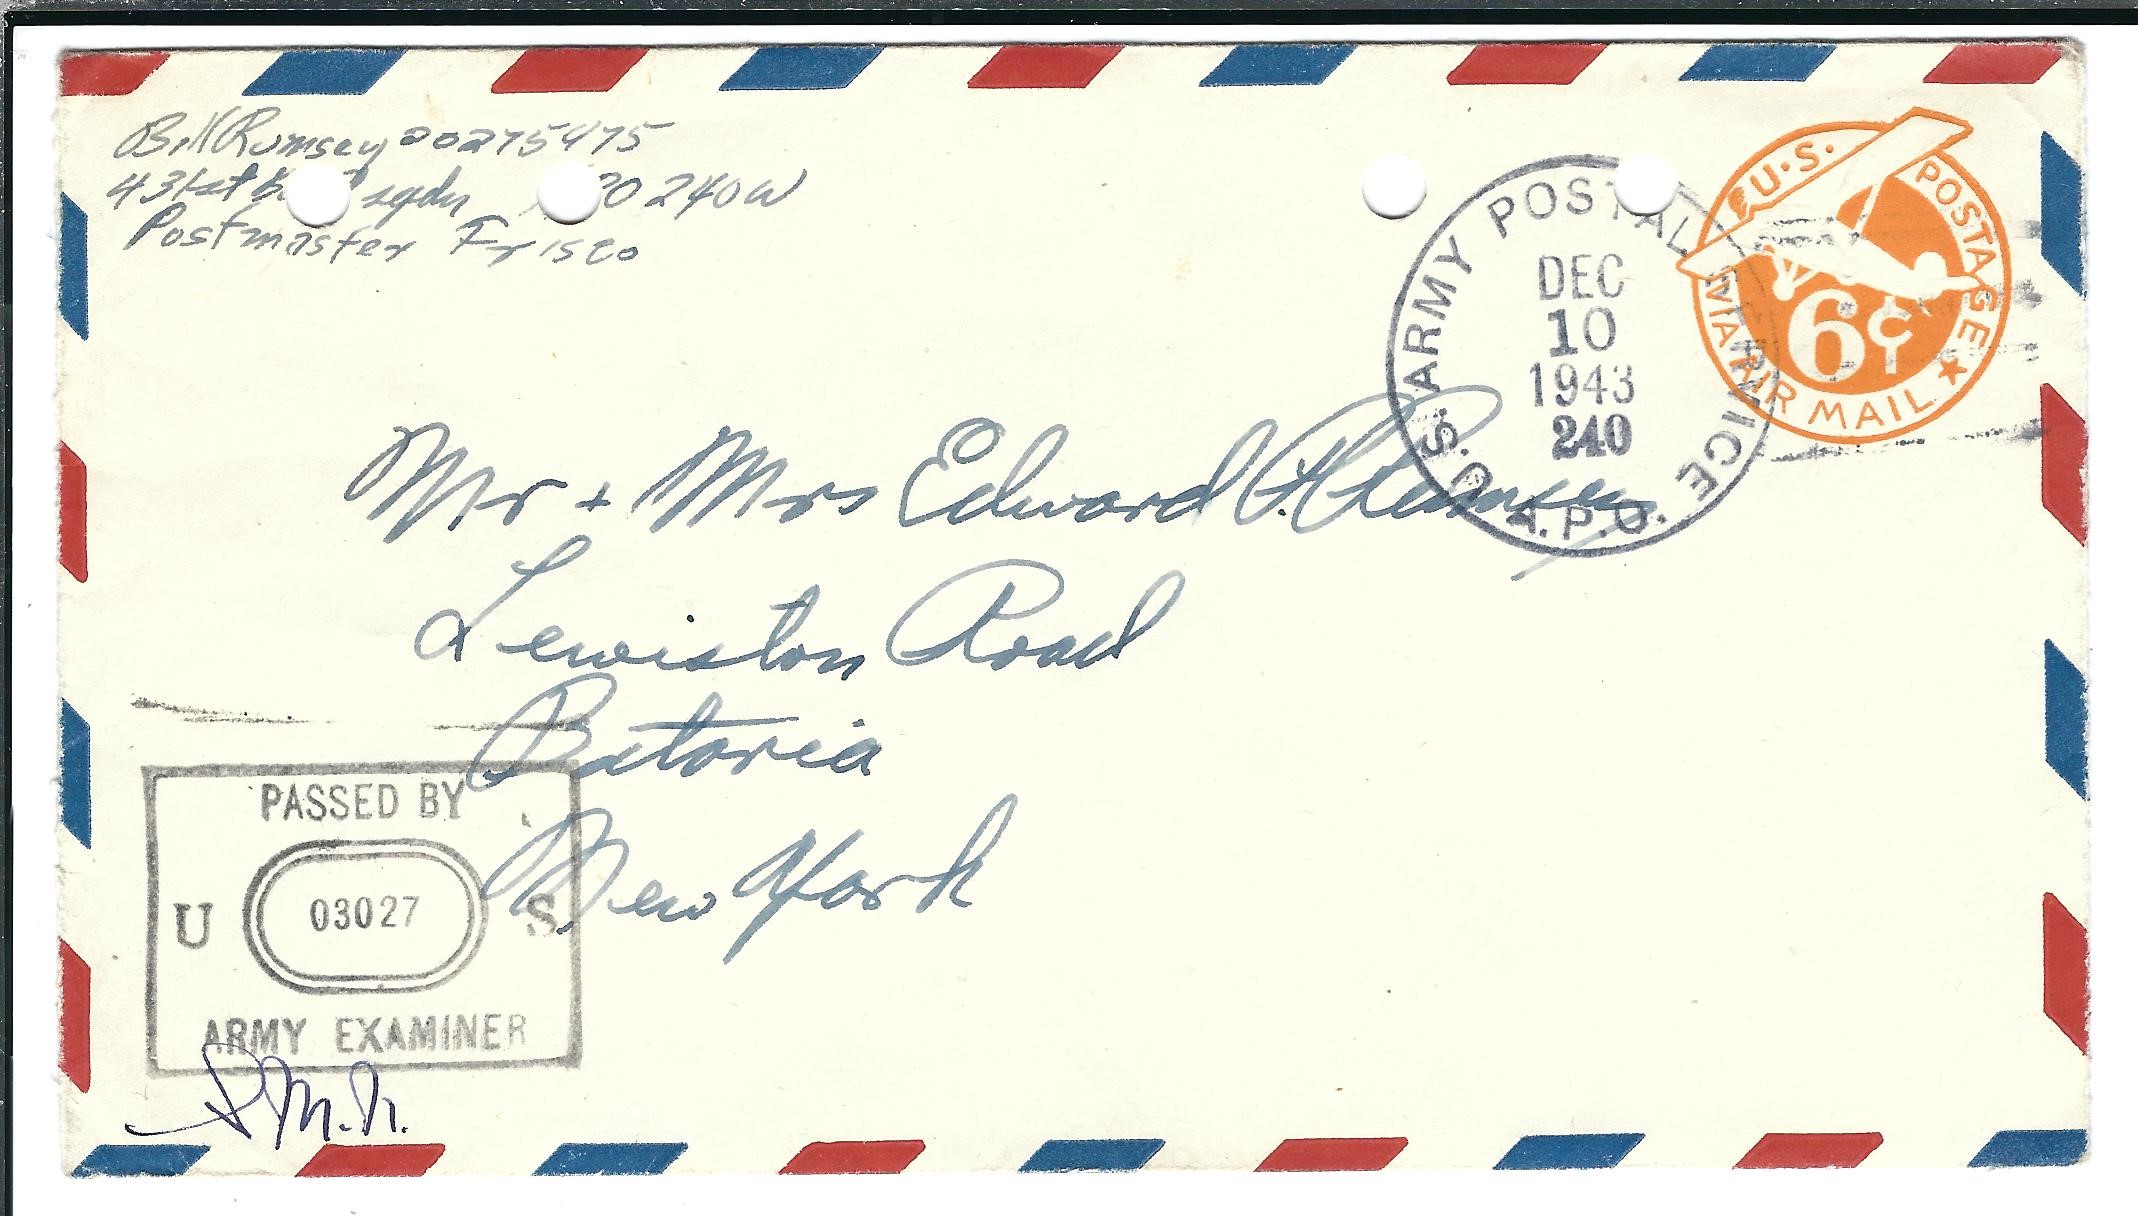 Bill Rumsey 20275475
431st sqdn 240 W
Postmaster Frisco
U.S. POSTAGE
VIA AIR MAIL
6¢
U.S. ARMY POSTAL SERVICE
A.P.O.
DEC
10
1943
240
Mr + Mrs Edward P. Rumsey
Lewiston Road
Batavia
New York
PASSED BY
U 03027 S
ARMY EXAMINER